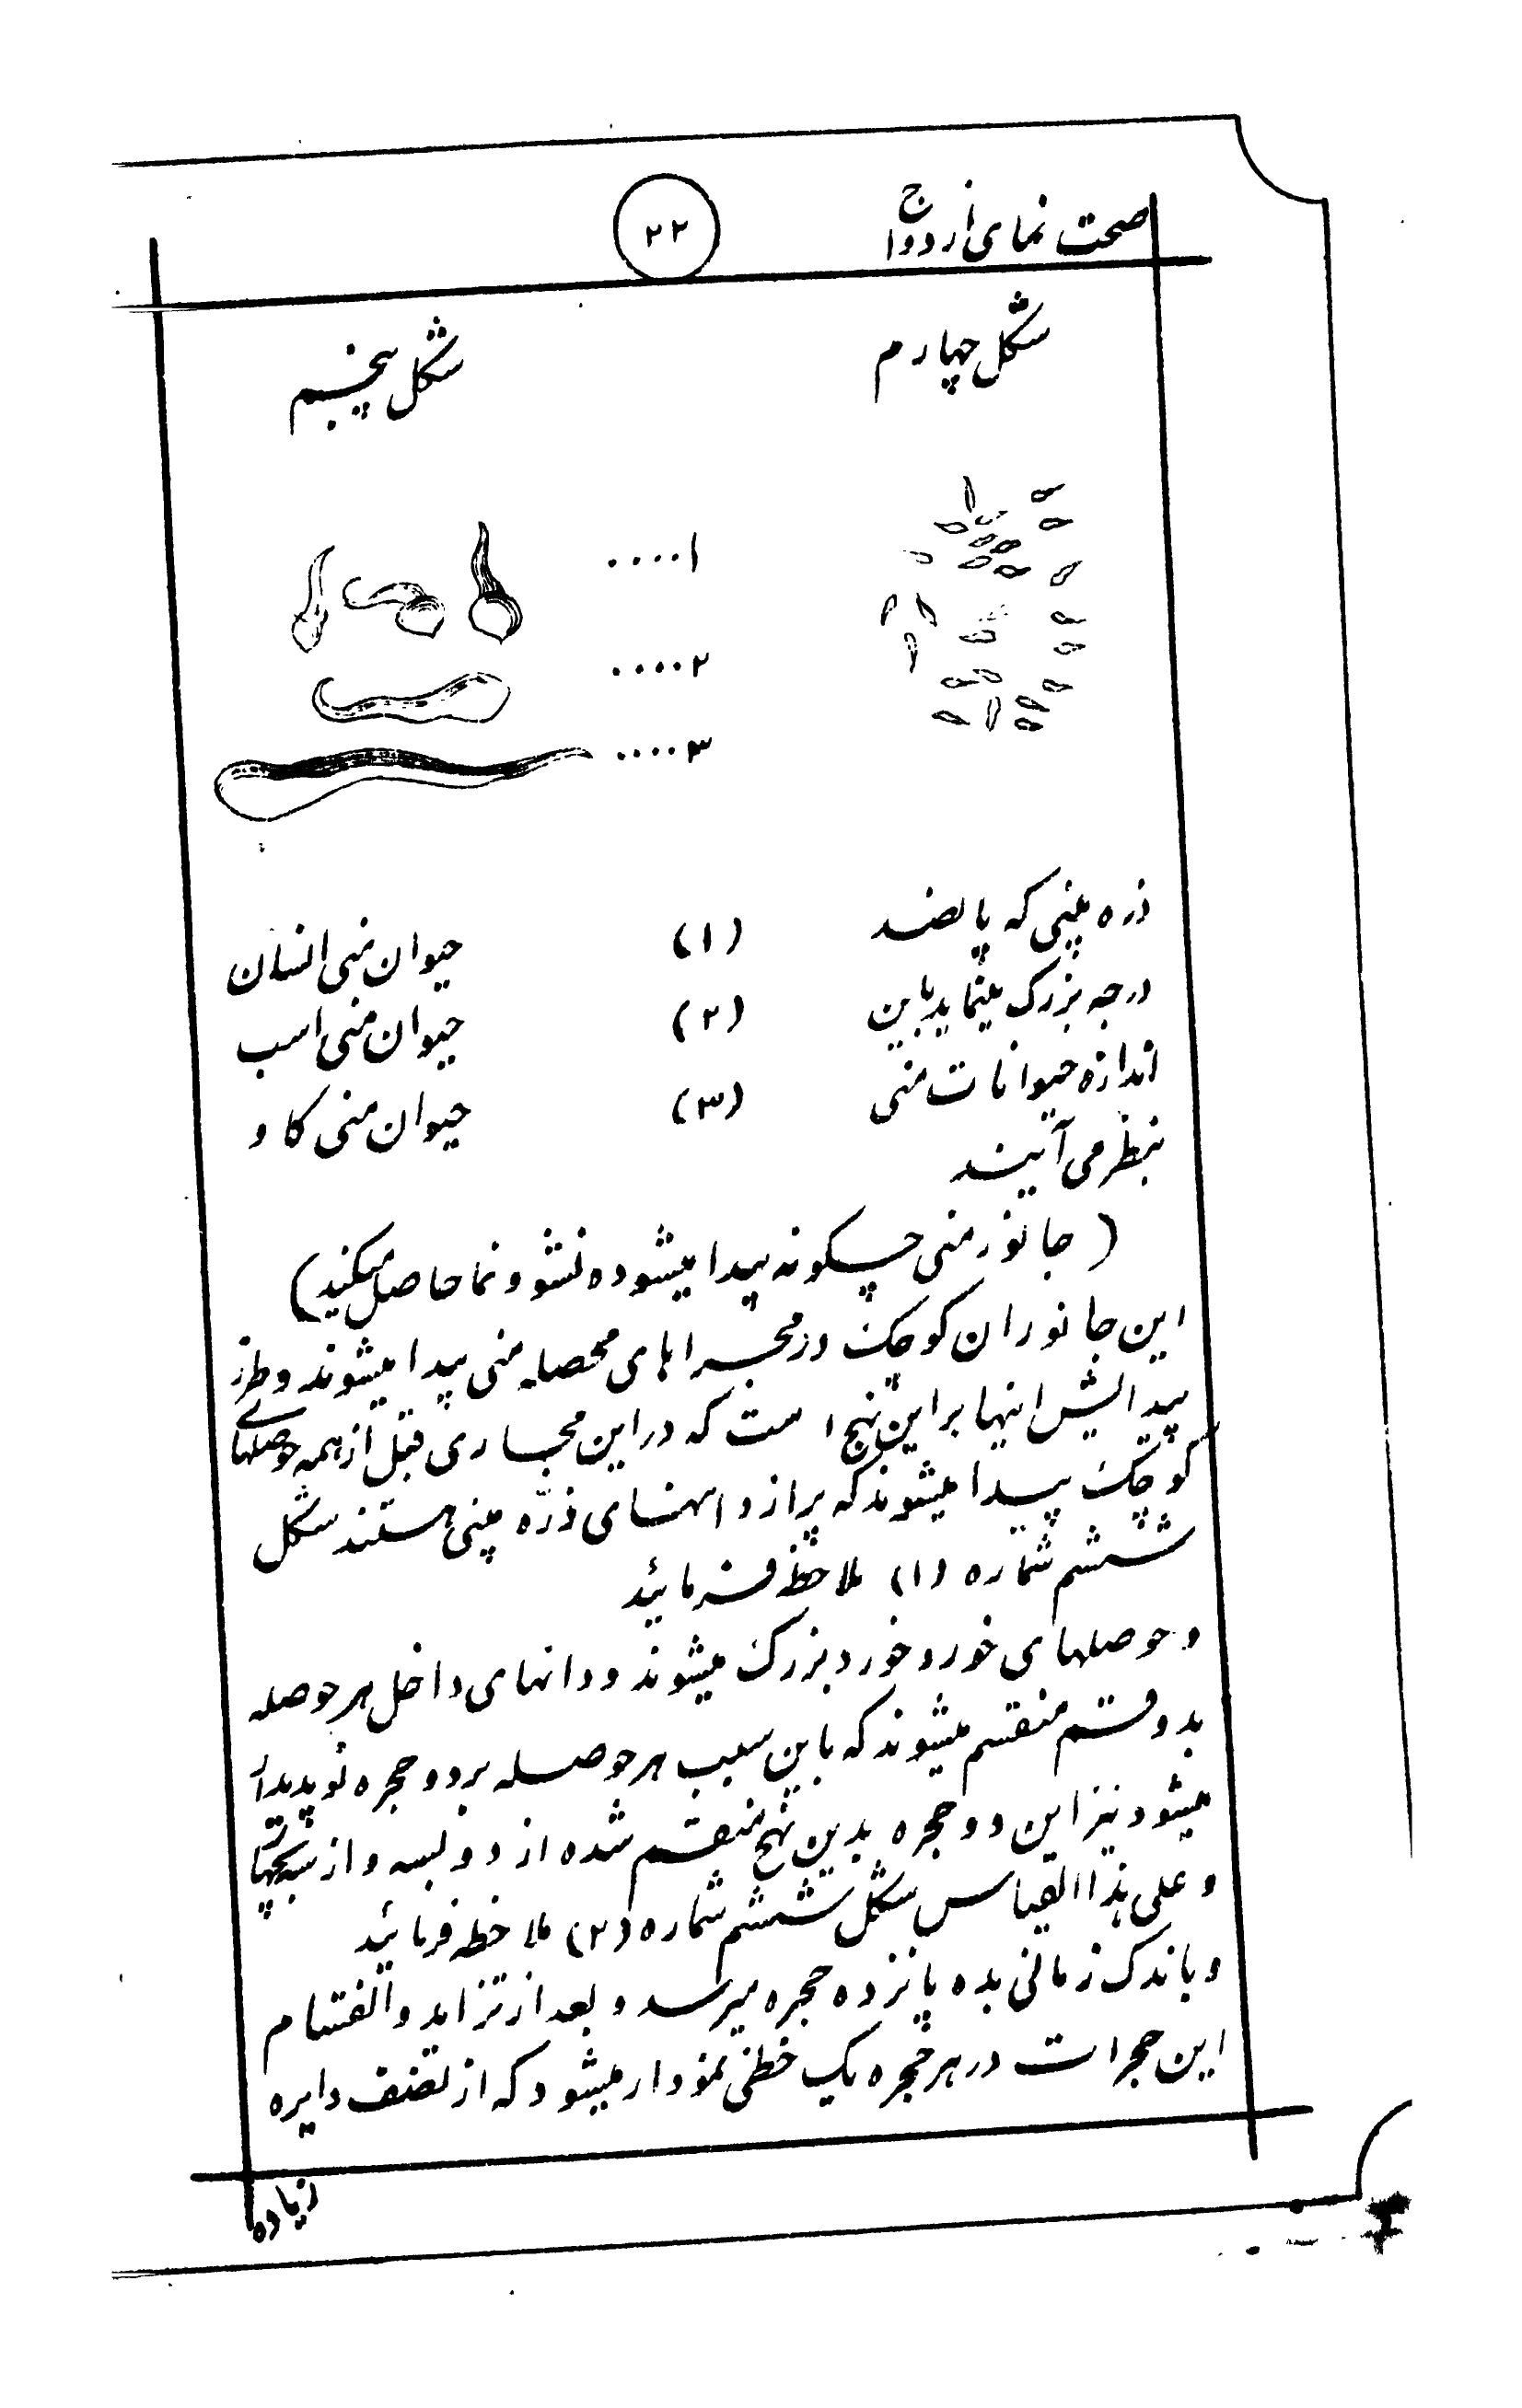 صحت نمای ازدواج
۲۲
شکل چهارم
شکل پنجم
۱....
۲....
۳....
ذره بینی که پانصد
درجه بزرگ مینماید باین
اندازه حیوانات منی
بنظر می آیند
(۱) حیوان منی انسان
(۲) حیوان منی اسب
(۳) حیوان منی کاو
(جانور منی چسکونه پیدا میشود ه نشو و نما حاصل میکنید)
این جانوران کوچک در مجراهای محصله منی پیدا میشوند و طرز
پیدایش اینها براین نهج است که در این مجاری قبل از همه حوصلهای
کوچک پیدا میشوند که پر از دانهای ذره بینی هستند شکل
ششم شماره (۱) ملاحظه فرمائید
و حوصلهای خورد خورد بزرگ میشوند و دانهای داخل هر حوصله
بدو قسم منقسم میشوند که باین سبب هر حوصله بر دو حجره نو پیدا
میشود نیز این دو حجره بدین نهج منقسم شده از دو لبسه و از سه بچهار
و علی هذا القیاس شکل ششم شماره (۲) ملاحظه فرمائید
و باندک زمانی بده پانزده حجره میرسد و بعد از تزاید و انقسام
این حجرات در هر حجره یک خطی نمودار میشود که از نصف دایره
زیاده